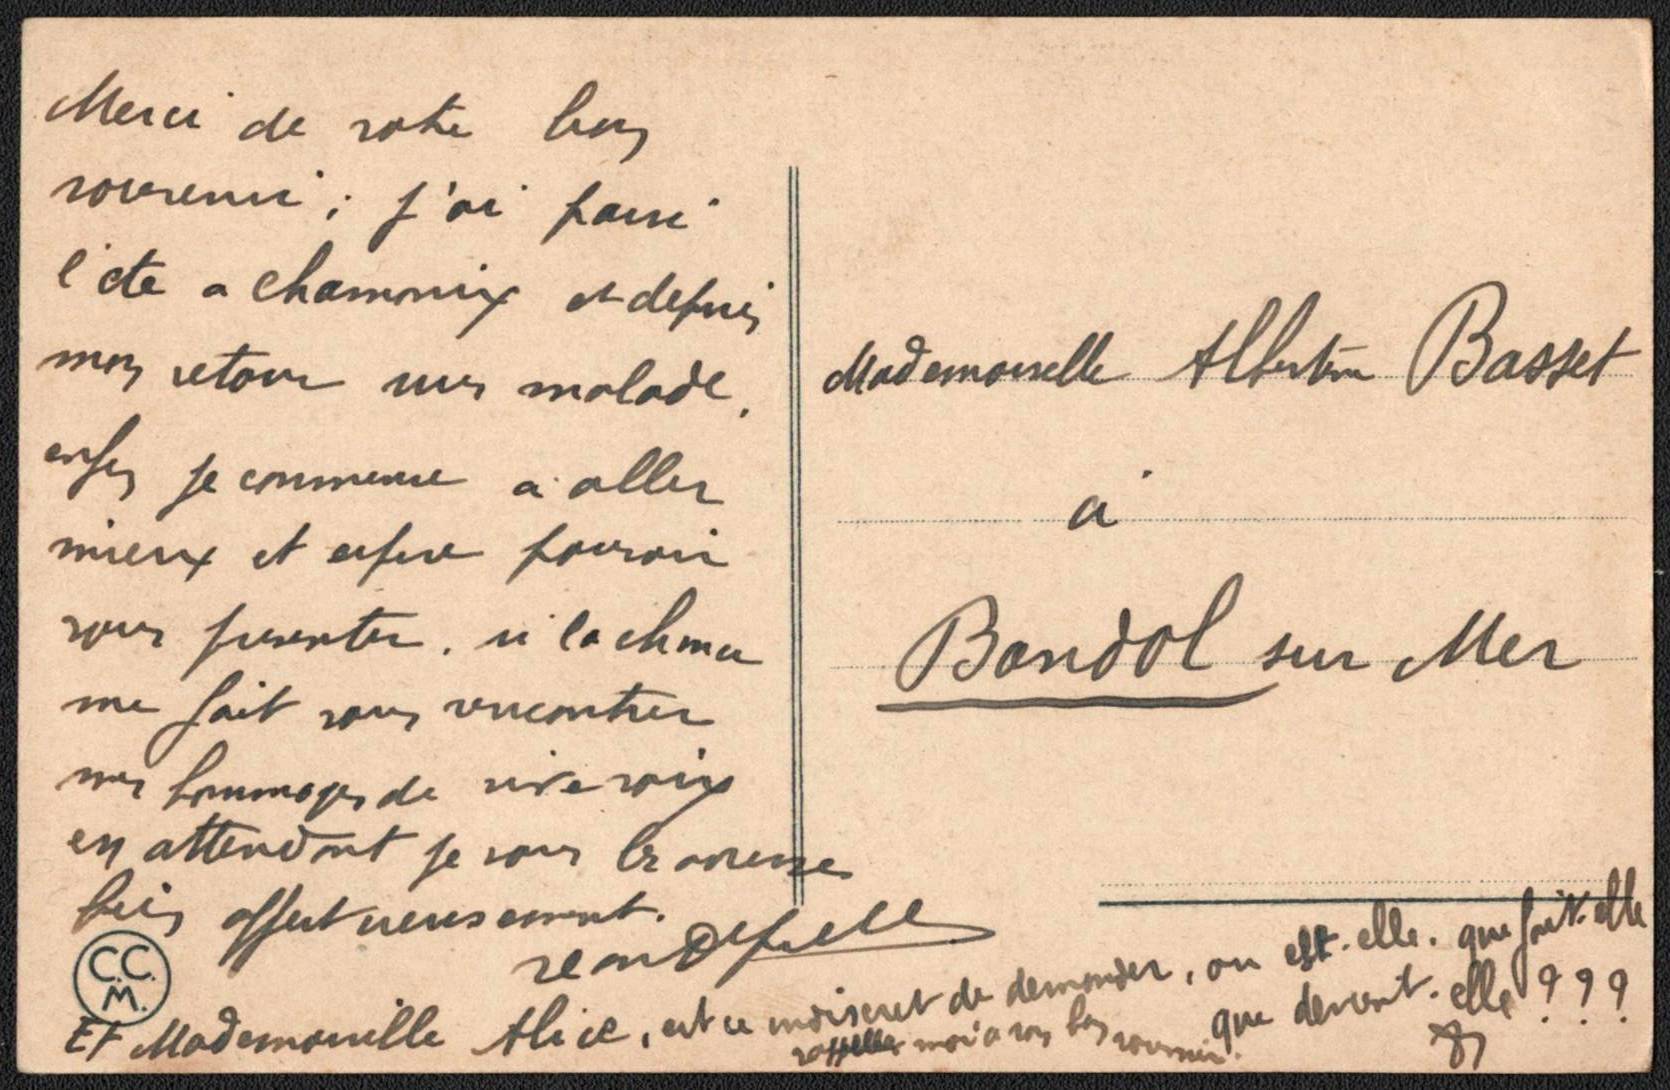 Merci de votre bon
souvenir ; j'ai passé
l'ete a Chamonix et depuis
mon retour suis malade.
enfin je commence a aller
mieux et espere pouvoir
vous presenter. si la chance
me fait vous rencontrer
mes hommages de vive voix
en attendant je vous
bien affectueusement.
C.C.
M.
Et Mademoiselle Alice, est ce indiscret de demander, ou est-elle. que fait-elle
que devient-elle ? ? ?
rappellez moi a son bon souvenir.
Mademoiselle Albertine Basset
à
Bandol sur Mer